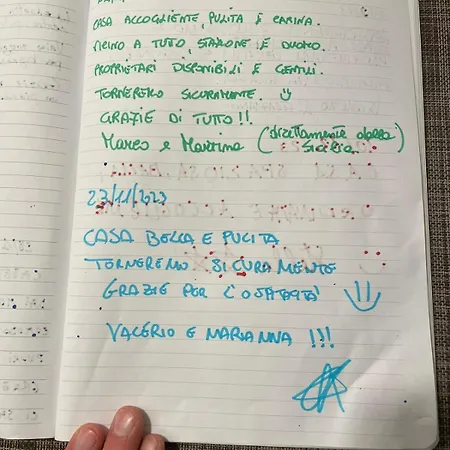 CASA ACCOGLIENTE, PULITA E CARINA.
VICINO A TUTO, STAZIONE E DUOMO.
PROPRIETARI DISPONIBILI E GENTILI.
TORNEREMO SICURAMENTE.
GRAZIE DI TUTTO!!
e Martina (direttamente dalla
Sicilia)
23/11/2023
CASA BELLA E PULITA
TORNEREMO SICURAMENTE
GRAZIE PER L'OSPITALITÀ
VALERIO E MARIANNA !!!